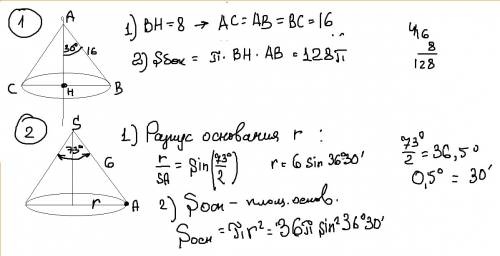 1
A
30°
16
C
H
B
1) BH = 8 → AC = AB = BC = 16
2) Sбок = π · BH · AB = 128π
16
8
128
2
S
73°
6
r
A
1) Радиус основания r :
r/SA = Sin(73°/2) r = 6 sin 36°30'
73°/2 = 36,5°
0,5° = 30'
2) Sосн - площ. основ.
Sосн = πr² = 36π sin² 36°30'